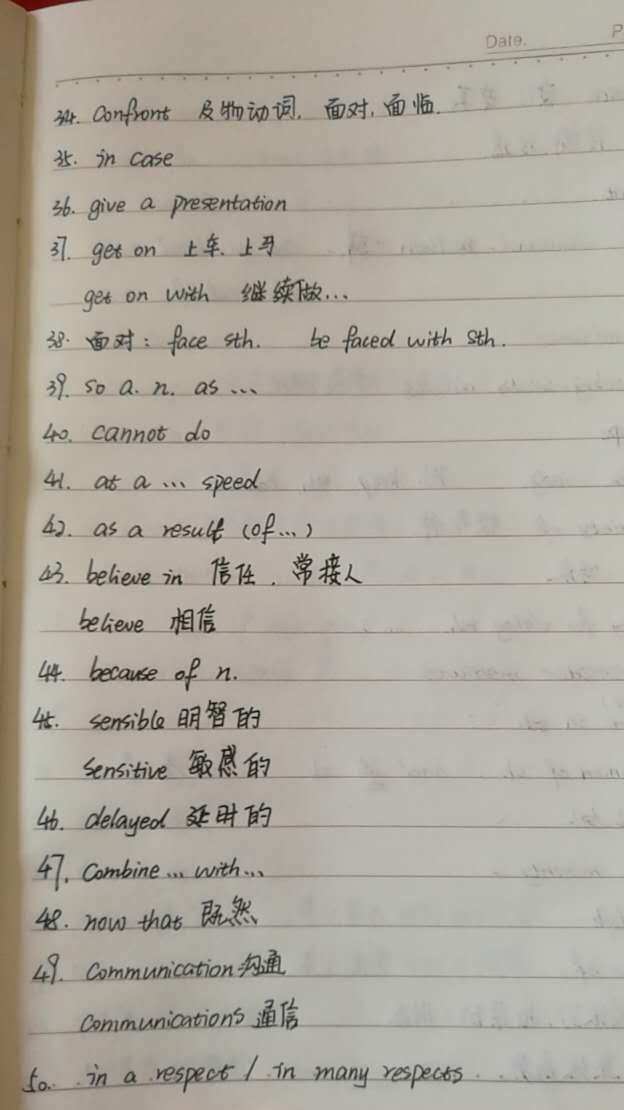 Date. P
34. Confront 及物动词. 面对, 面临.
35. in case
36. give a presentation
37. get on 上车、上马
get on with 继续做...
38. 面对: face sth. be faced with sth.
39. so a. n. as ...
40. cannot do
41. at a ... speed
42. as a result (of...)
43. believe in 信任. 常接人
believe 相信
44. because of n.
45. sensible 明智的
sensitive 敏感的
46. delayed 延时的
47. Combine ... with...
48. now that 既然
49. Communication 沟通
Communications 通信
50. in a respect / in many respects